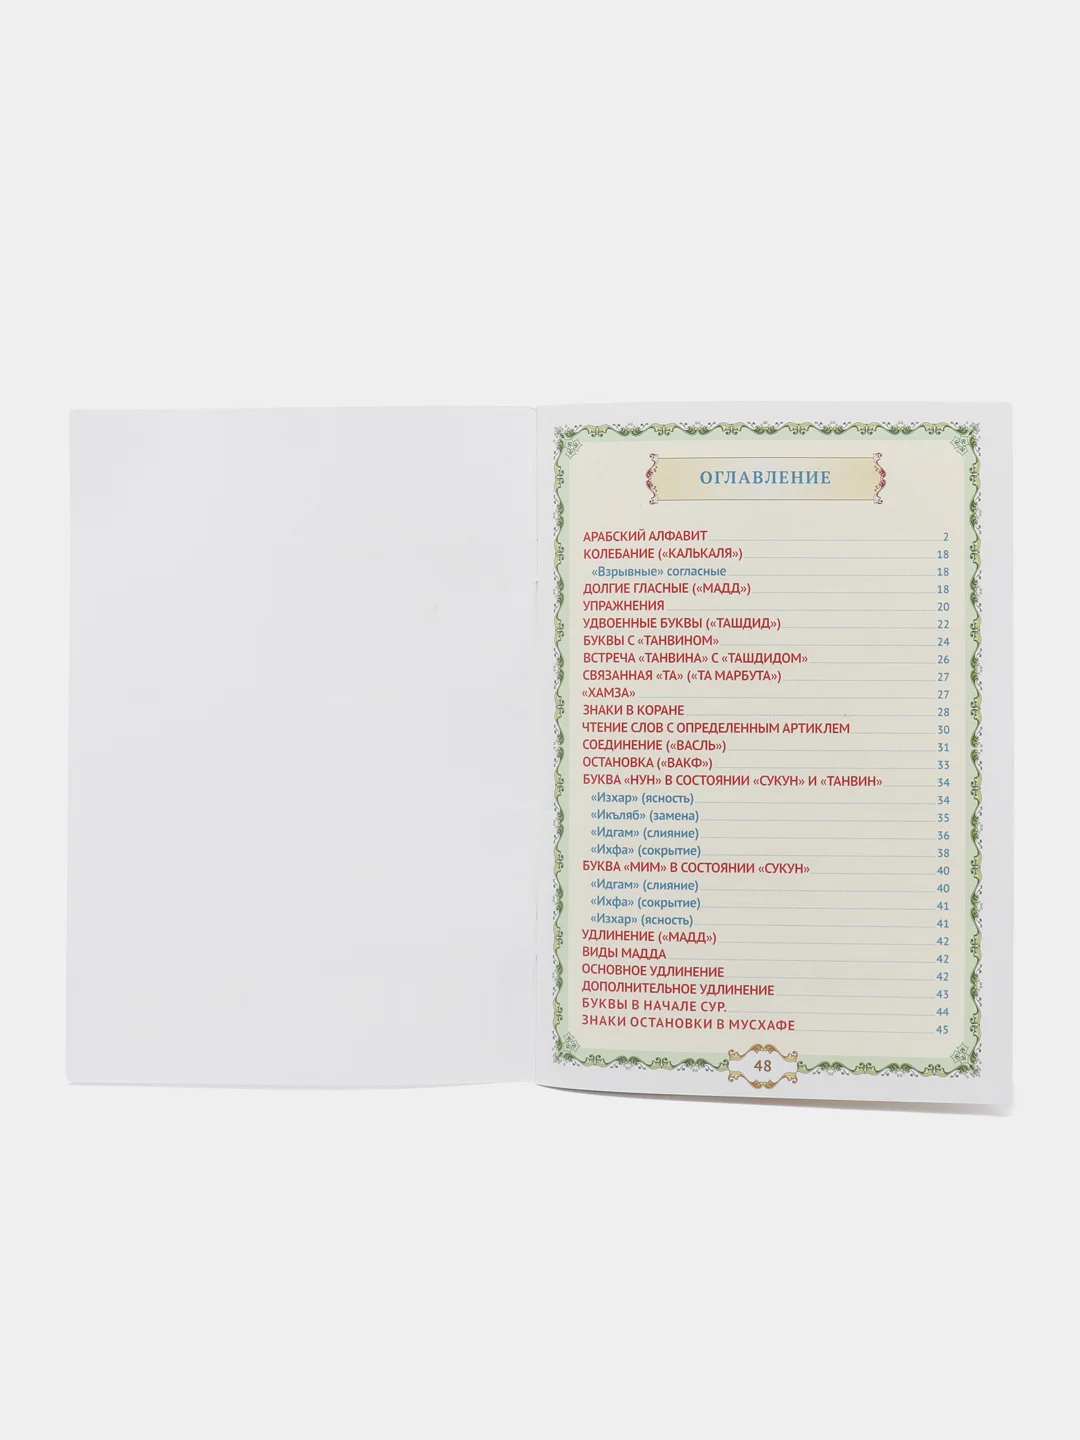 ОГЛАВЛЕНИЕ
АРАБСКИЙ АЛФАВИТ 2
КОЛЕБАНИЕ («КАЛЬКАЛЯ») 18
«Взрывные» согласные 18
ДОЛГИЕ ГЛАСНЫЕ («МАДД») 18
УПРАЖНЕНИЯ 20
УДВОЕННЫЕ БУКВЫ («ТАШДИД») 22
БУКВЫ С «ТАНВИНОМ» 24
ВСТРЕЧА «ТАНВИНА» С «ТАШДИДОМ» 26
СВЯЗАННАЯ «ТА» («ТА МАРБУТА») 27
«ХАМЗА» 27
ЗНАКИ В КОРАНЕ 28
ЧТЕНИЕ СЛОВ С ОПРЕДЕЛЕННЫМ АРТИКЛЕМ 30
СОЕДИНЕНИЕ («ВАСЛЬ») 31
ОСТАНОВКА («ВАКФ») 33
БУКВА «НУН» В СОСТОЯНИИ «СУКУН» И «ТАНВИН» 34
«Изхар» (ясность) 34
«Икъляб» (замена) 35
«Идгам» (слияние) 36
«Ихфа» (сокрытие) 38
БУКВА «МИМ» В СОСТОЯНИИ «СУКУН» 40
«Идгам» (слияние) 40
«Ихфа» (сокрытие) 41
«Изхар» (ясность) 41
УДЛИНЕНИЕ («МАДД») 42
ВИДЫ МАДДА 42
ОСНОВНОЕ УДЛИНЕНИЕ 42
ДОПОЛНИТЕЛЬНОЕ УДЛИНЕНИЕ 43
БУКВЫ В НАЧАЛЕ СУР. 44
ЗНАКИ ОСТАНОВКИ В МУСХАФЕ 45
48